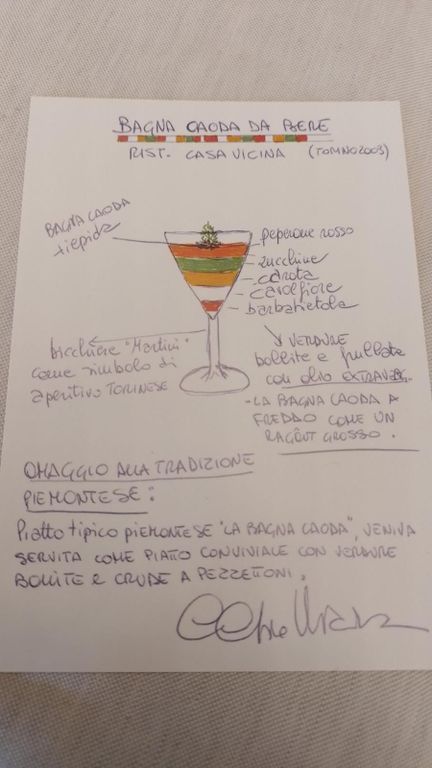 BAGNA CAODA DA BERE
RIST. CASA VICINA (TORINO 2003)
BAGNA CAODA
tiepida
peperone rosso
zucchine
carota
cavolfiore
barbabietola
bicchiere "Martini"
come simbolo di
aperitivo TORINESE
VERDURE
bollite e frullate
con olio EXTRAVERG.
- LA BAGNA CAODA A
FREDDO COME UN
RAGÔUT GROSSO.
OMAGGIO ALLA TRADIZIONE
PIEMONTESE:
Piatto tipico PIEMONTESE "LA BAGNA CAODA", VENIVA
SERVITA COME PIATO CONVIVIALE CON VERDURE
BOLLITE E CRUDE A PEZZETTONI.